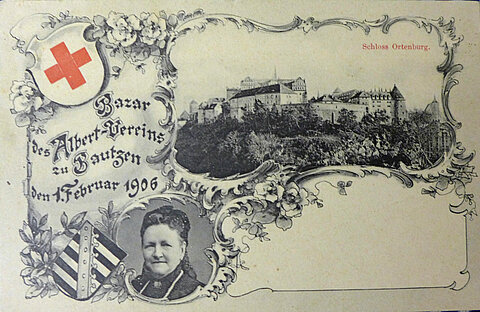 Schloss Ortenburg.
Bazar
des Albert-Vereins
zu Bautzen
den 1. Februar 1906